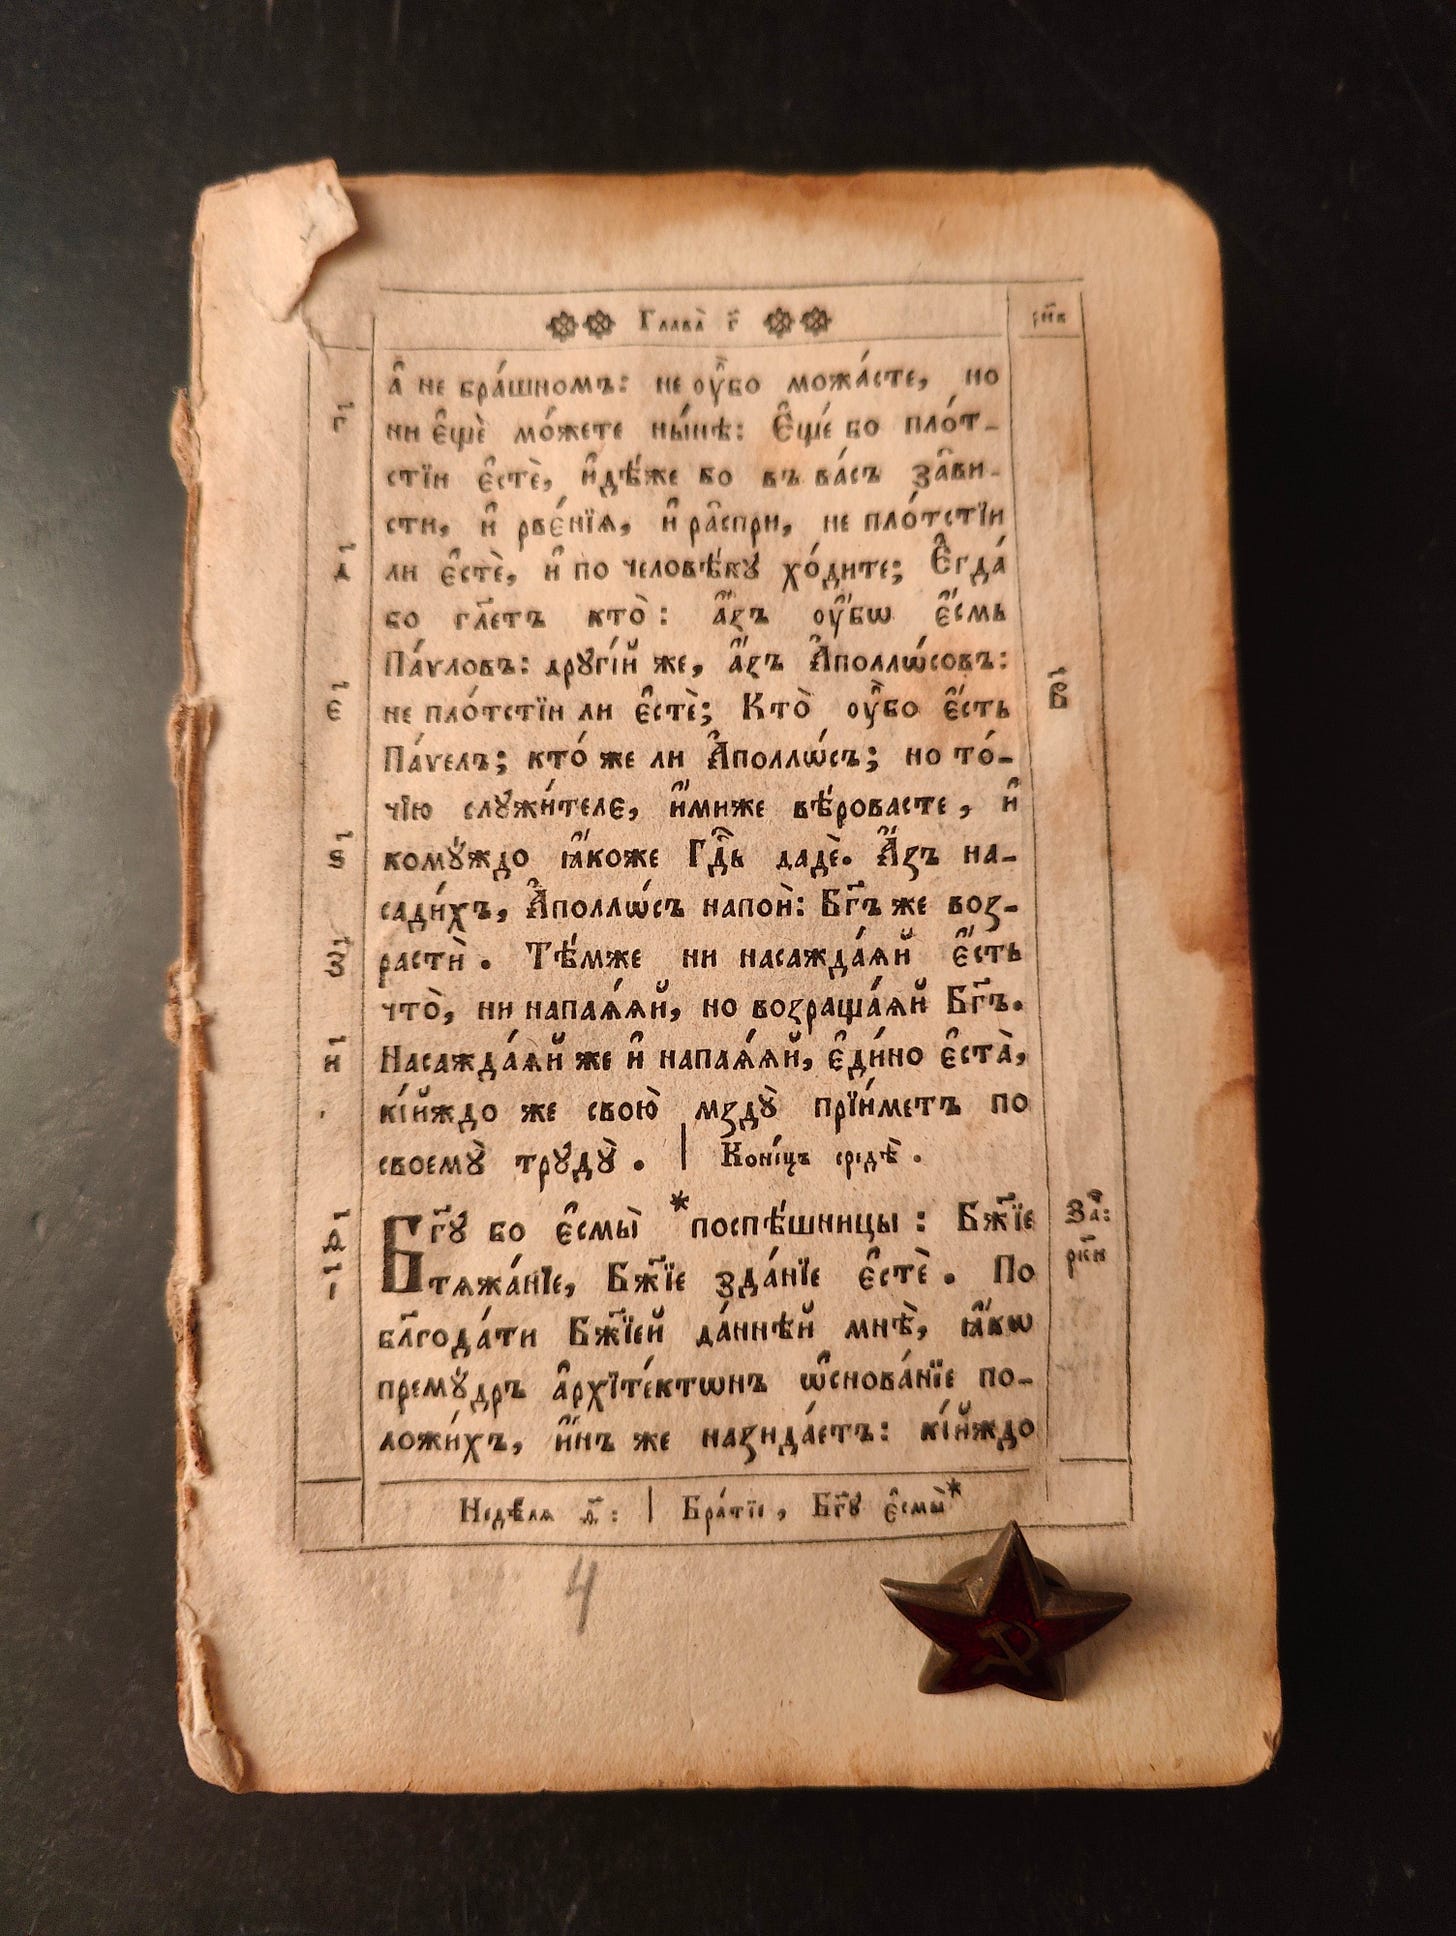 Глава̀ г҃ сн҃в
а҆ не бра́шномъ: не ᲂу҆̀бо можа́сте, но
г҃ ни є҆щѐ мо́жете ны́нѣ: Є҆ще́ бо пло́т-
стїи є҆стѐ, и҆дѣ́же бо въ ва́съ за҆ви-
сти, и҆ рве́нїѧ, и҆ ра҆спри, не пло́тстїи
д҃ ли є҆стѐ, и҆ по человѣ́кꙋ хо́дите; Є҆гда́
бо гл҃етъ кто̀: а҆́зъ ᲂу҆́бѡ є҆́смь
Па́ѵловъ: дрꙋгі́й же, а҆́зъ А҆поллѡ́совъ:
є҃ не пло́тстїи ли є҆стѐ; Кто̀ ᲂу҆̀бо є҆́сть в҃
Па́ѵелъ; кто́ же ли А҆поллѡ́съ; но то́-
чїю слꙋжи́телє, и҆́миже вѣ́ровасте, и҆
ѕ҃ комꙋ́ждо ꙗ҆́коже Гдⷭ҇ь дадѐ. А҆́зъ на-
сади́хъ, А҆поллѡ́съ напоѝ: Бг҃ъ же воз-
з҃ растѝ. Тѣ́мже ни насажда́ѧй є҆́сть
что̀, ни напаѧ́ѧй, но возраща́ѧй Бг҃ъ.
и҃ Насажда́ѧй же и҆ напаѧ́ѧй, є҆ди́но є҆ста̀,
кі́йждо же свою̀ мздꙋ̀ прїи́метъ по
своемꙋ̀ трꙋдꙋ̀. | Коне́цъ средѣ̀.
д҃ Бг҃ꙋ бо є҆смы̀ *поспѣ́шницы: Бж҃їе За҆ч:
і҃ тѧжа́нїе, Бж҃їе зда́нїе є҆стѐ. По рк҃и
бл҃года́ти Бж҃їей да́ннѣй мнѣ̀, ꙗ҆́кѡ
премꙋ́дръ а҆рхїте́ктѡнъ ѡ҆снова́нїе по-
ложи́хъ, и҆́нъ же назида́етъ: кі́йждо
Недѣ́лѧ д҃: | Бра́тїе, Бг҃ꙋ є҆смы̀*
4